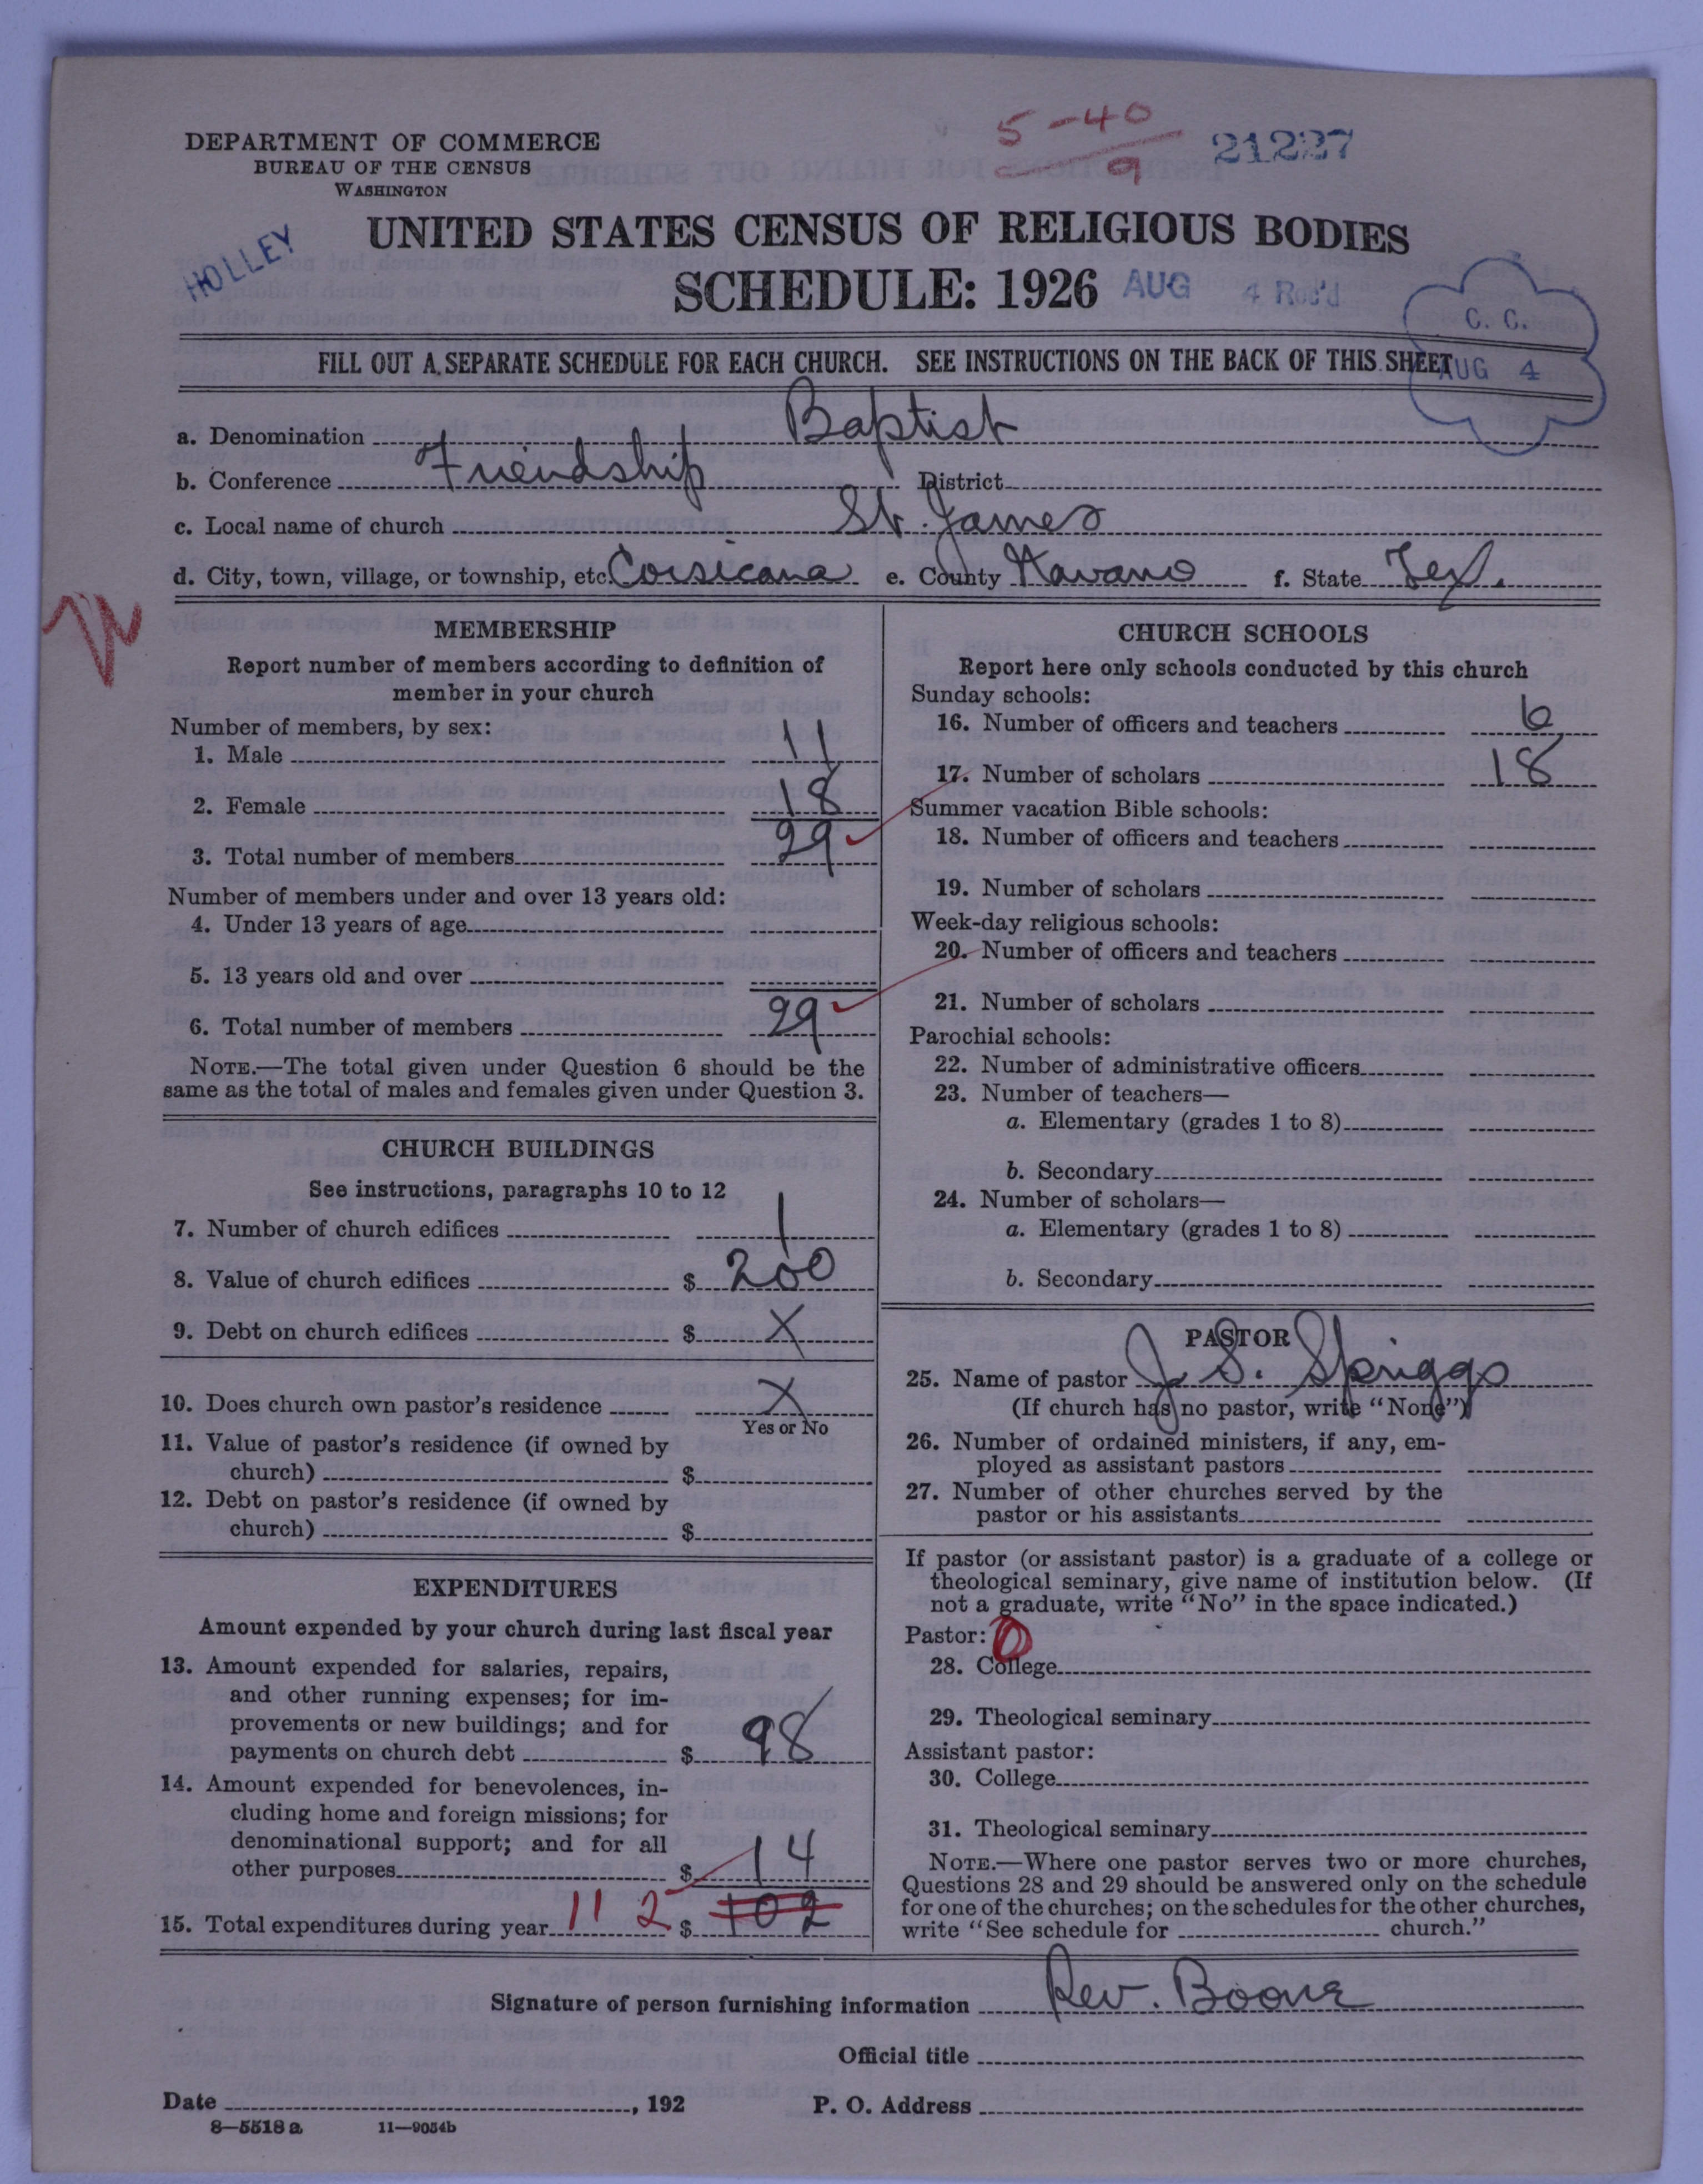 5-40
9
21227
DEPARTMENT OF COMMERCE
BUREAU OF THE CENSUS
WASHINGTON
HOLLEY
UNITED STATES CENSUS OF RELIGIOUS BODIES
SCHEDULE: 1926
AUG 4 Rec'd
C. C.
AUG 4
FILL OUT A SEPARATE SCHEDULE FOR EACH CHURCH. SEE INSTRUCTIONS ON THE BACK OF THIS SHEET
a. Denomination Baptist
b. Conference Friendship District
c. Local name of church St. James
d. City, town, village, or township, etc. Corsicana e. County Navaro f. State Tex.
MEMBERSHIP
Report number of members according to definition of
member in your church
Number of members, by sex:
1. Male 11
2. Female 18
3. Total number of members 29
Number of members under and over 13 years old:
4. Under 13 years of age
5. 13 years old and over
6. Total number of members 29
NOTE.—The total given under Question 6 should be the
same as the total of males and females given under Question 3.
CHURCH BUILDINGS
See instructions, paragraphs 10 to 12
7. Number of church edifices 1
8. Value of church edifices $ 200
9. Debt on church edifices $ X
10. Does church own pastor's residence X
Yes or No
11. Value of pastor's residence (if owned by
church) $
12. Debt on pastor's residence (if owned by
church) $
EXPENDITURES
Amount expended by your church during last fiscal year
13. Amount expended for salaries, repairs,
and other running expenses; for im-
provements or new buildings; and for
payments on church debt $ 98
14. Amount expended for benevolences, in-
cluding home and foreign missions; for
denominational support; and for all
other purposes $ 14
15. Total expenditures during year 112 $ 102
CHURCH SCHOOLS
Report here only schools conducted by this church
Sunday schools:
16. Number of officers and teachers 6
17. Number of scholars 18
Summer vacation Bible schools:
18. Number of officers and teachers
19. Number of scholars
Week-day religious schools:
20. Number of officers and teachers
21. Number of scholars
Parochial schools:
22. Number of administrative officers
23. Number of teachers—
a. Elementary (grades 1 to 8)
b. Secondary
24. Number of scholars—
a. Elementary (grades 1 to 8)
b. Secondary
PASTOR
25. Name of pastor J. S. Spriggs
(If church has no pastor, write "None")
26. Number of ordained ministers, if any, em-
ployed as assistant pastors
27. Number of other churches served by the
pastor or his assistants
If pastor (or assistant pastor) is a graduate of a college or
theological seminary, give name of institution below. (If
not a graduate, write "No" in the space indicated.)
Pastor: 0
28. College
29. Theological seminary
Assistant pastor:
30. College
31. Theological seminary
NOTE.—Where one pastor serves two or more churches,
Questions 28 and 29 should be answered only on the schedule
for one of the churches; on the schedules for the other churches,
write "See schedule for church."
Signature of person furnishing information Rev. Boone
Official title
Date , 192 P. O. Address
8—5518 a 11—9054b